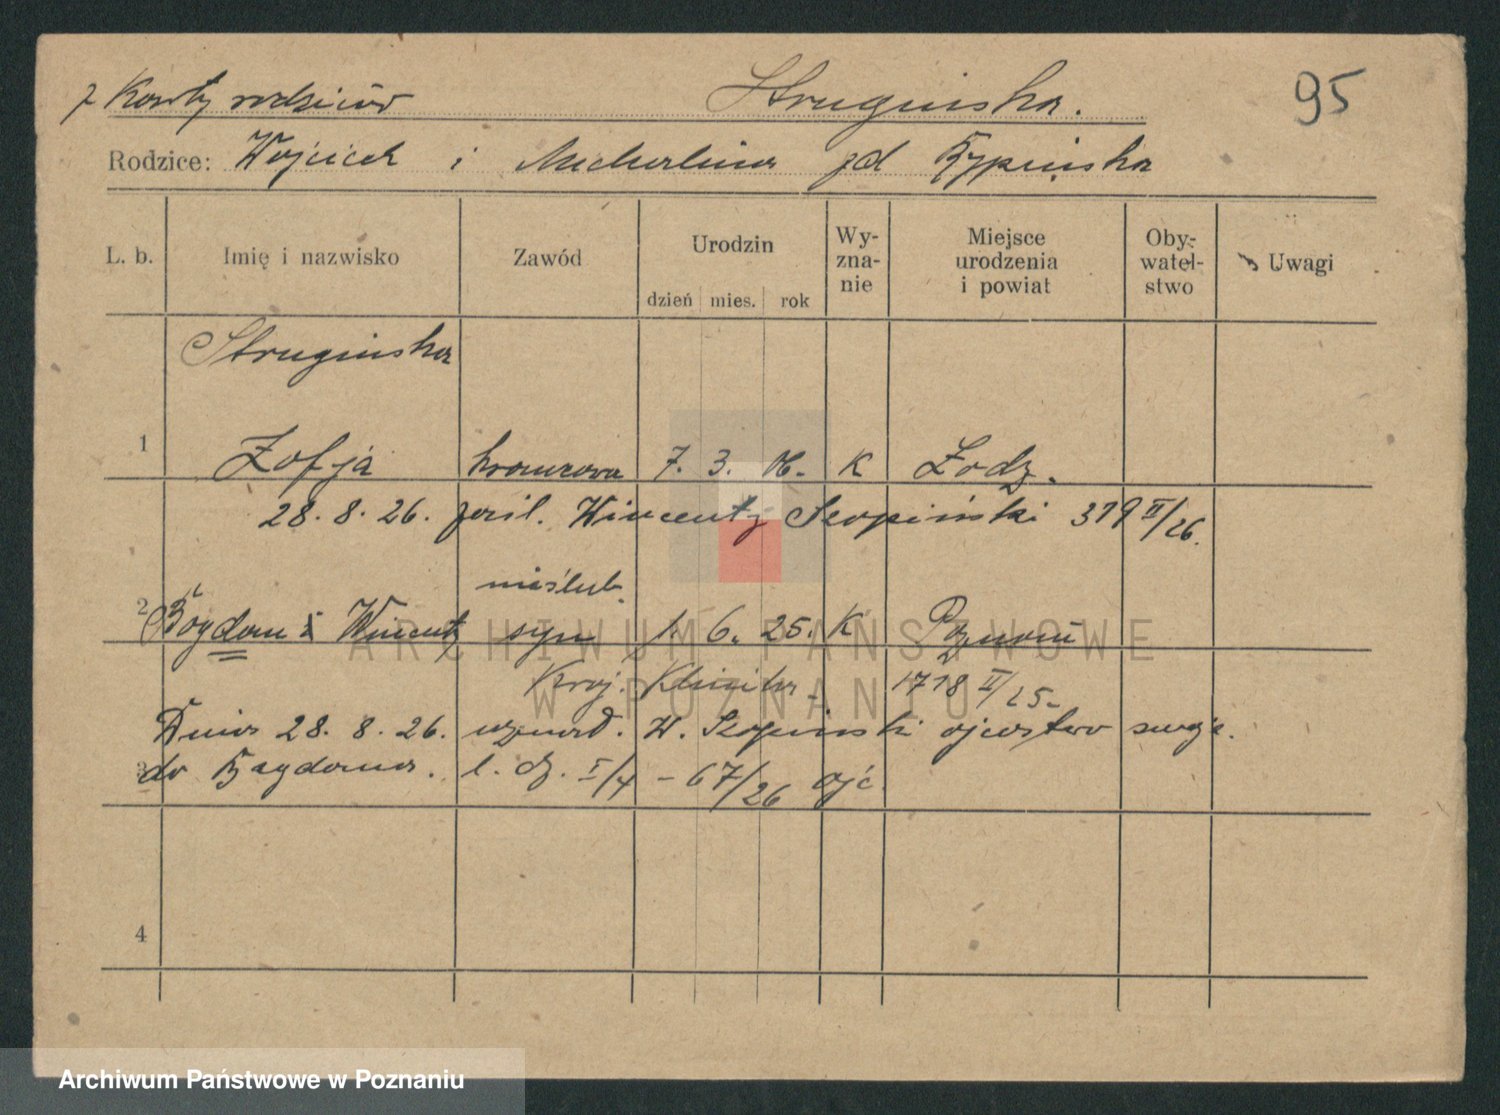 z Karty rodziców Strugińska. 95
Rodzice: Wojciech i Michalina zd Rypińska
L. b. Imię i nazwisko Zawód Urodzin Wy-zna-nie Miejsce urodzenia i powiat Oby-watel-stwo Uwagi
dzień mies. rok
Strugińska
1 Zofja krawcowa 7. 3. 06. K Łodz.
28. 8. 26. zaśl. Wincenty Szopiński 319 II/26.
nieślub.
2 Bogdan Wincenty syn 1. 6. 25. K Poznań
Kraj. Klinika 1718 II/25.
Dnia 28. 8. 26. uznał. W. Szopiński ojcostwo swoje.
3 do Bogdana. l. dz. I/4 - 67/26 Ojc.
4
ARCHIWUM PAŃSTWOWE
W POZNANIU
Archiwum Państwowe w Poznaniu